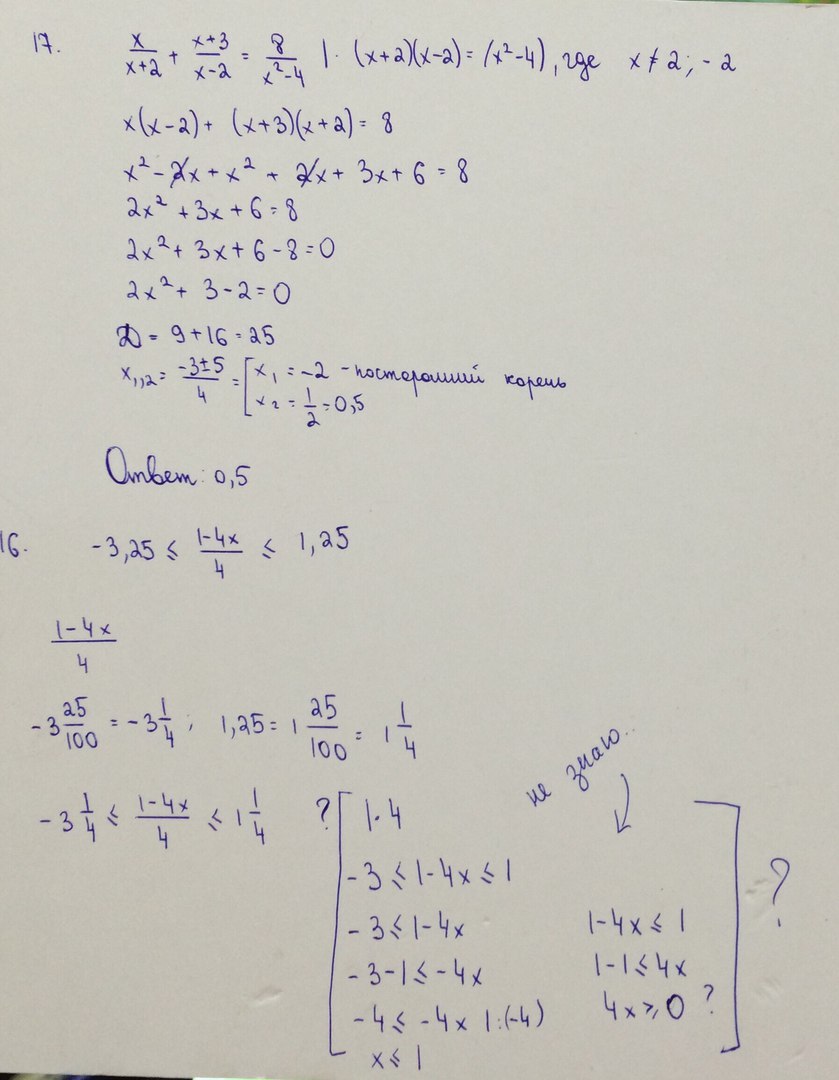 17. x/(x+2) + (x+3)/(x-2) = 8/(x²-4) | · (x+2)(x-2) = (x²-4), где x ≠ 2; -2
x(x-2) + (x+3)(x+2) = 8
x² - 2x + x² + 2x + 3x + 6 = 8
2x² + 3x + 6 = 8
2x² + 3x + 6 - 8 = 0
2x² + 3 - 2 = 0
D = 9 + 16 = 25
x₁,₂ = (-3±5)/4 = [ x₁ = -2 - посторонний корень
x₂ = 1/2 = 0,5
Ответ: 0,5
16. -3,25 ≤ (1-4x)/4 ≤ 1,25
(1-4x)/4
-3 25/100 = -3 1/4 ; 1,25 = 1 25/100 = 1 1/4
не знаю..
-3 1/4 ≤ (1-4x)/4 ≤ 1 1/4 ? [ | · 4
-3 ≤ 1-4x ≤ 1 ?
-3 ≤ 1-4x 1-4x ≤ 1
-3-1 ≤ -4x 1-1 ≤ 4x
-4 ≤ -4x | :(-4) 4x ≥ 0 ?
x ≤ 1